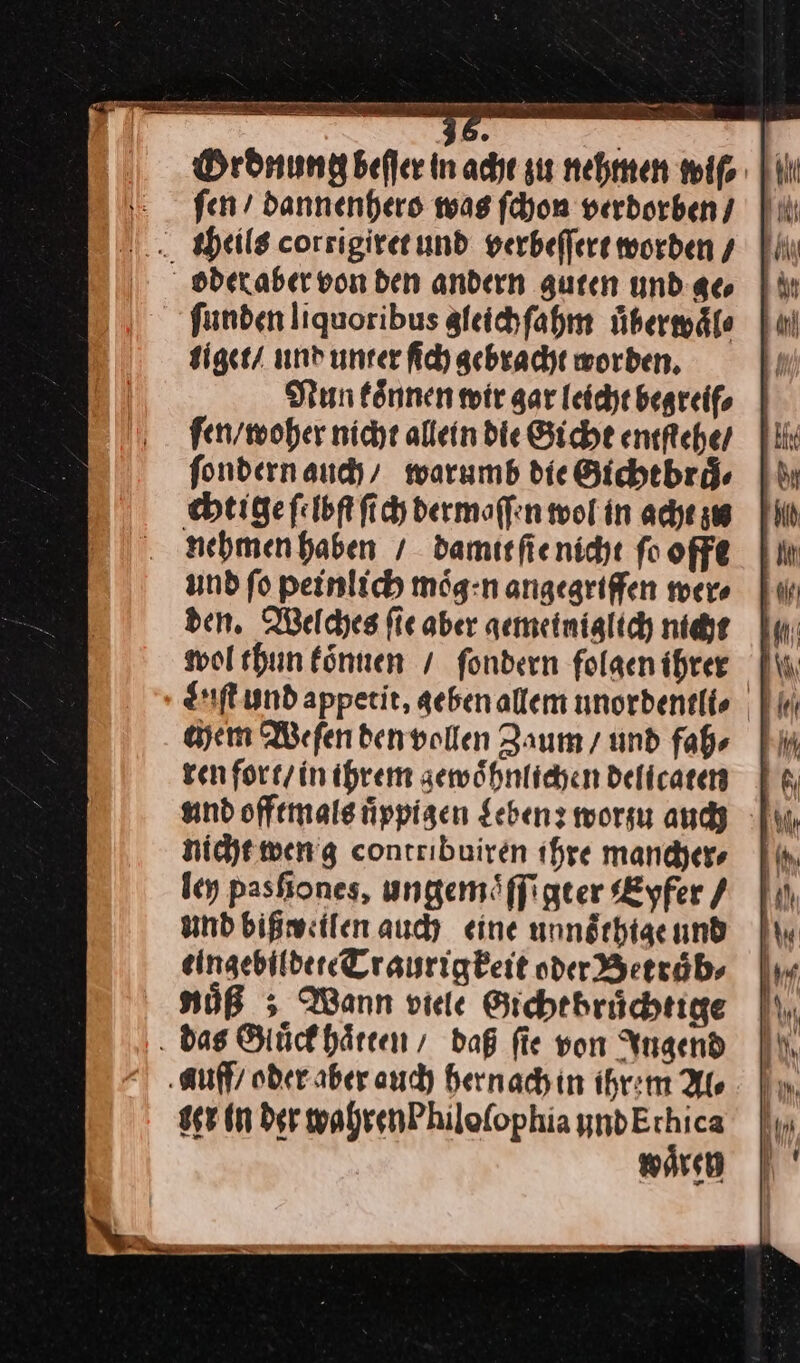 36.
Ordnung beſſer in acht zu nehmen wiſ⸗
ſen / dannenhero was ſchon verdorben /
theils corrigiret und verbeſſert worden /
oder aber von den andern guten und ge⸗
ſunden liquoribus gleichſahm uͤberwaͤl⸗
tiget / und unter ſich gebracht worden.
Nun koͤnnen wir gar leicht begreif⸗
fen / woher nicht allein die Gicht entſtehe /
ſondern auch / warumb die Gichtbruͤ⸗
chtige ſelbſt ſich dermaſſen wol in acht zu
nehmen haben / damit ſie nicht ſo offt
und ſo peinlich moͤgen angegriffen wer⸗
den. Welches ſie aber gemeiniglich nicht
wol thun koͤnnen / ſondern folgen ihrer
Luſt und appetit, geben allem unordentli⸗
chem Weſen den vollen Zaum / und fah⸗
ren fort / in ihrem gewoͤhnlichen delicaten
und offtmals uͤppigen Leben: worzu auch
nicht wenig contribuiren ihre mancher⸗
ley pasſiones, ungemaͤſſigter Eyfer /
und bißweilen auch eine unnoͤthige und
eingebildete Traurigkeit oder Betruͤb⸗
nuͤß ; Wann viele Gichtbruͤchtige
das Gluͤck haͤtten / daß ſie von Jugend
auff / oder aber auch hernach in ihrem Al⸗
ter in der wahren Philoſophia und Ethica
waͤren